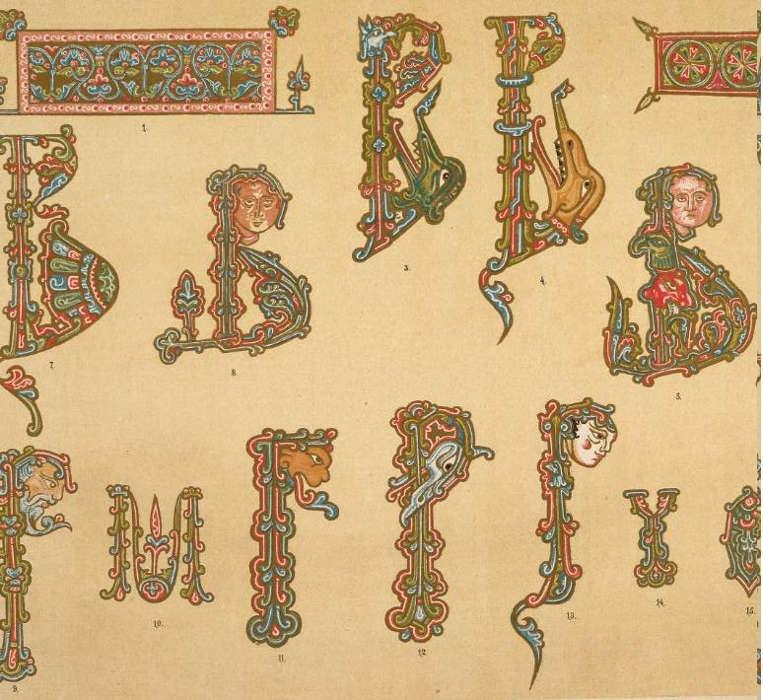 1.
В В
3. 4.
В В В
7. 8. 5.
Р М Р Р Р У
9. 10. 11. 12 13. 14. 15.